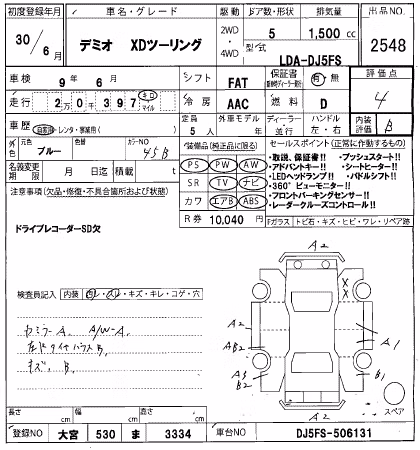 初度登録年月 車名・グレード 駆動 ドア数・形状 排気量 出品NO
30/6月 デミオ XDツーリング 2WD・4WD 5 1,500cc 2548
型式 LDA-DJ5FS
車検 9年6月 シフト FAT 保証書 有・無 評価点
走行 2万0千397 キロ マイル 冷房 AAC 燃料 D 4
車歴 自家用・レンタ・事業用( ) 定員 5人 外車モデル 年 ディーラー・並行 ハンドル 左・右 内装評価 B
外色 元色 ブルー カラーNO 45B
名義変更期限 月 日迄 積載 t
装備品(純正品に限る)
PS PW AW
SR TV ナビ
カワ エアB ABS
R券 10,040円
セールスポイント(正常に作動するもの)
・取説、保証書!! ・プッシュスタート!!
・アドバントキー!! ・シートヒーター!!
・LEDヘッドランプ!! ・パドルシフト!!
・360°ビューモニター!!
・フロントパーキングセンサー!!
・レーダークルーズコントロール!!
Fガラス トビ石・キズ・ヒビ・ワレ・リペア跡
注意事項(欠品・修復・不具合箇所および状態)
ドライブレコーダーSD欠
検査員記入 内装 ・キズ・キレ・コゲ・穴
A/W-A
キズ B
A2
X
X
A2
AB2
A1
A3
B2
B1
A2
スペア
長さ cm 幅 cm 高さ cm
登録NO 大宮 530 ま 3334 車台NO DJ5FS-506131